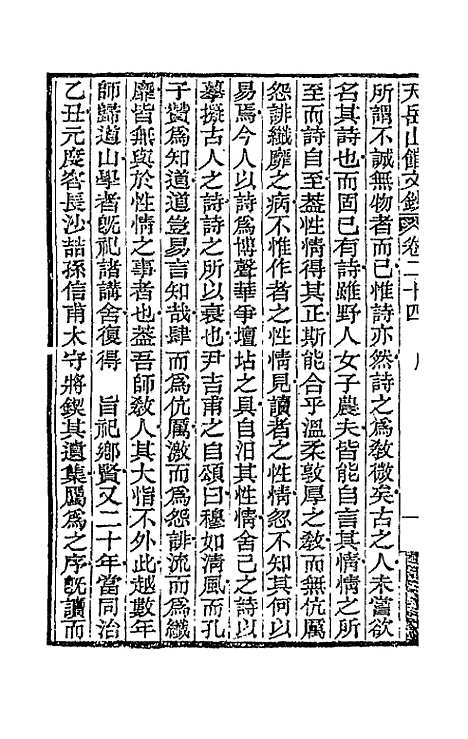 天岳山館文鈔 卷二十四 序 一
所謂不誠無物者而已惟詩亦然詩之爲敎微矣古之人未嘗欲
名其詩也而固已有詩雖野人女子農夫皆能自言其情情之所
至而詩自至蓋性情得其正斯能合乎溫柔敦厚之敎而無伉厲
怨誹纖靡之病不惟作者之性情見讀者之性情忽不知其何以
易焉今人以詩爲博聲華爭壇坫之具自汨其性情舍己之詩以
摹擬古人之詩詩之所以衰也尹吉甫之自頌曰穆如清風而孔
子贊爲知道道豈易言知哉肆而爲伉厲激而爲怨誹流而爲纖
靡皆無與於性情之事者也蓋吾師敎人其大恉不外此越數年
師歸道山學者旣祀諸講舍復得 旨祀鄉賢又二十年當同治
乙丑元度客長沙喆孫信甫太守將鍥其遺集屬爲之序旣讀而